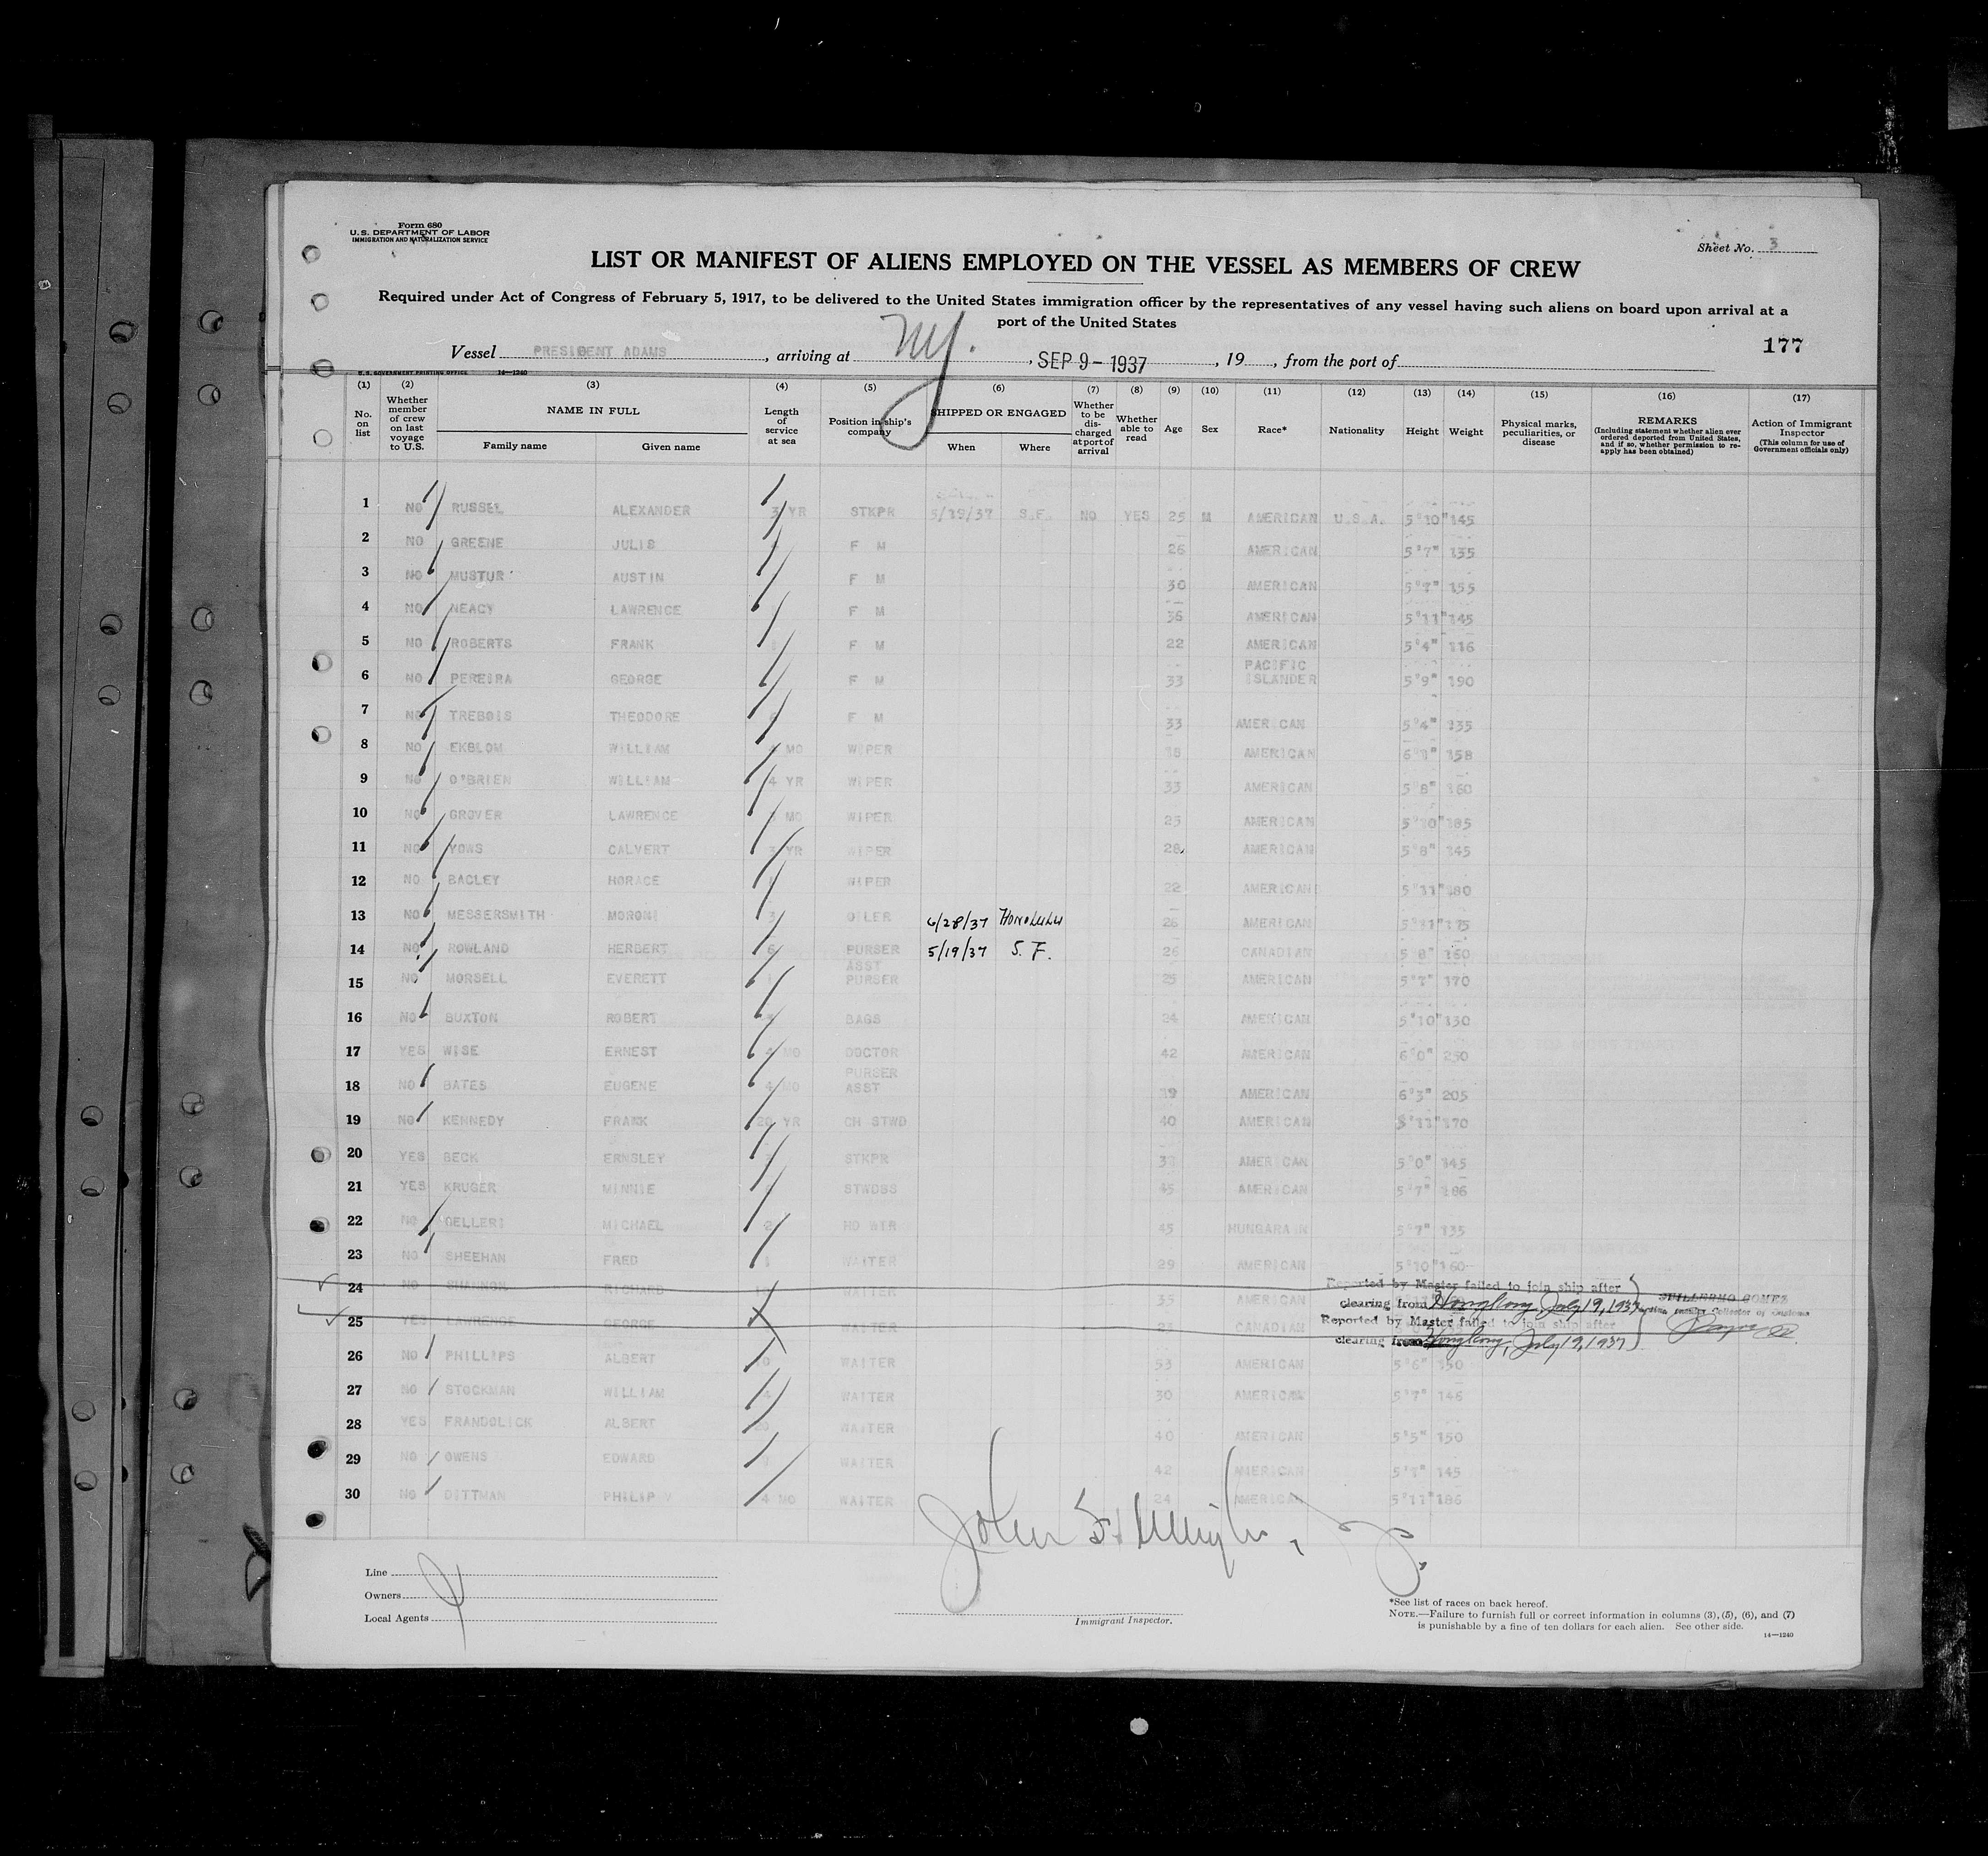 Form 680
U.S. DEPARTMENT OF LABOR
IMMIGRATION AND NATURALIZATION SERVICE
Sheet No. 3
LIST OR MANIFEST OF ALIENS EMPLOYED ON THE VESSEL AS MEMBERS OF CREW
Required under Act of Congress of February 5, 1917, to be delivered to the United States immigration officer by the representatives of any vessel having such aliens on board upon arrival at a
port of the United States
177
Vessel PRESIDENT ADAMS, arriving at NY., SEP 9 - 1937, 19, from the port of
U.S. GOVERNMENT PRINTING OFFICE 14—1240
(1) (2) (3) (4) (5) (6) (7) (8) (9) (10) (11) (12) (13) (14) (15) (16) (17)
No. on list
Whether member of crew on last voyage to U.S.
NAME IN FULL
Family name
Given name
Length of service at sea
Position in ship's company
SHIPPED OR ENGAGED
When
Where
Whether to be discharged at port of arrival
Whether able to read
Age
Sex
Race*
Nationality
Height
Weight
Physical marks, peculiarities, or disease
REMARKS
(Including statement whether alien ever ordered deported from United States, and if so, whether permission to reapply has been obtained)
Action of Immigrant Inspector
(This column for use of Government officials only)
1 NO RUSSEL ALEXANDER 3 YR STKPR 5/19/37 S.F. NO YES 25 M AMERICAN U.S.A. 5'10" 145
2 NO GREENE JULIS F M 26 AMERICAN 5'7" 135
3 NO MUSTUR AUSTIN F M 30 AMERICAN 5'7" 155
4 NO NEACY LAWRENCE F M 36 AMERICAN 5'11" 145
5 NO ROBERTS FRANK F M 22 AMERICAN 5'4" 116
6 NO PEREIRA GEORGE F M 33 PACIFIC ISLANDER 5'9" 190
7 NO TREBOIS THEODORE F M 33 AMERICAN 5'4" 135
8 NO EKBLOM WILLIAM MO WIPER AMERICAN 158
9 NO O'BRIEN WILLIAM 4 YR WIPER 33 AMERICAN 5'8" 160
10 NO GROVER LAWRENCE MO WIPER 25 AMERICAN 5'10" 185
11 NO YOWS CALVERT 3 YR WIPER 28 AMERICAN 5'8" 145
12 NO BAGLEY HORACE WIPER 22 AMERICAN 5'11" 180
13 NO MESSERSMITH MORONI OILER 6/28/37 HONOLULU 26 AMERICAN 5'11" 175
14 NO ROWLAND HERBERT 6 PURSER 5/19/37 S.F. 26 CANADIAN 5'8" 160
15 NO MORSELL EVERETT ASST PURSER 25 AMERICAN 5'7" 170
16 NO BUXTON ROBERT BAGS 24 AMERICAN 5'10" 130
17 YES WISE ERNEST 4 MO DOCTOR 42 AMERICAN 6'0" 250
18 NO BATES EUGENE 4 MO PURSER ASST 19 AMERICAN 6'3" 205
19 NO KENNEDY FRANK 20 YR CH STWD 40 AMERICAN 5'11" 170
20 YES BECK ERNSLEY STKPR AMERICAN 5'0" 145
21 YES KRUGER MINNIE STWDSS 45 AMERICAN 5'7" 186
22 NO GELLERI MICHAEL 2 HD WTR 45 HUNGARAIN 5'7" 135
23 NO SHEEHAN FRED WAITER 29 AMERICAN 5'10" 160
24 NO SHANNON RICHARD WAITER 35 AMERICAN Reported by Master failed to join ship after
clearing from Hongkong, July 19, 1937
25 YES LAWRENCE GEORGE WAITER 23 CANADIAN Reported by Master failed to join ship after
clearing from Hongkong, July 19, 1937
GUILLERMO GOMEZ
Deputy Collector of Customs
26 NO PHILLIPS ALBERT WAITER 53 AMERICAN 5'6" 150
27 NO STOCKMAN WILLIAM 4 WAITER 30 AMERICAN 5'7" 146
28 YES FRANDOLICK ALBERT 20 WAITER 40 AMERICAN 5'5" 150
29 NO OWENS EDWARD WAITER 42 AMERICAN 5'7" 145
30 NO DITTMAN PHILIP V 4 MO WAITER 24 AMERICAN 5'11" 186
John
Line
Owners
Local Agents
Immigrant Inspector.
*See list of races on back hereof.
NOTE.—Failure to furnish full or correct information in columns (3), (5), (6), and (7)
is punishable by a fine of ten dollars for each alien. See other side.
14—1240